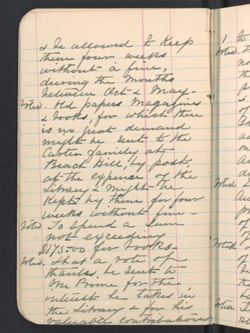 & be allowed to Keep
them four weeks
without a fine,
during the months
between Oct & May -
Voted. Old papers Magazines
& books, for which there
is no great demand
might be sent to the
family at
Beach Hill, by post,
at the expense of the
Library & might be
Kept by them for four
weeks without fine -
Voted To Spend a sum
not exceeding
$175.00 for books -
Voted. That a vote of
thanks be sent to
Mr Prime for the
interest he takes in
the Library & for his
valuable contributions